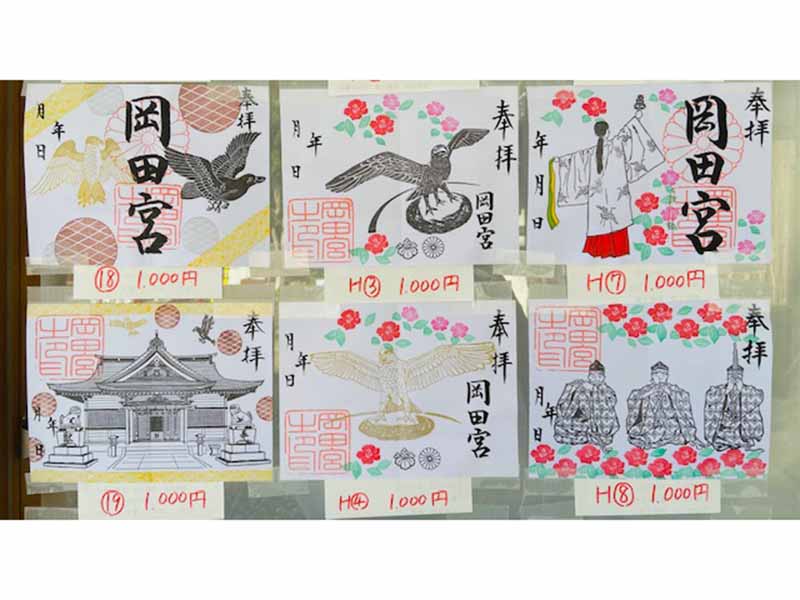 奉拝
岡田宮
月 年 日
⑱ 1.000円
奉拝
岡田宮
月 年 日
岡田宮
H③ 1.000円
奉拝
岡田宮
年 月 日
H⑦ 1.000円
奉拝
月 年 日
岡田宮
⑲ 1.000円
奉拝
岡田宮
月 年 日
岡田宮
H④ 1.000円
奉拝
月 年 日
岡田宮
H⑧ 1.000円